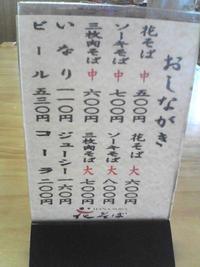 おしながき
花そば 中 五〇〇円
ソーキそば 中 七〇〇円
三枚肉そば 中 六〇〇円
いなり 一一〇円
ビール 五三〇円
花そば 大 六〇〇円
ソーキそば 大 八〇〇円
三枚肉そば 大 七〇〇円
ジューシー 一六〇円
コーラ 二〇〇円
花そば